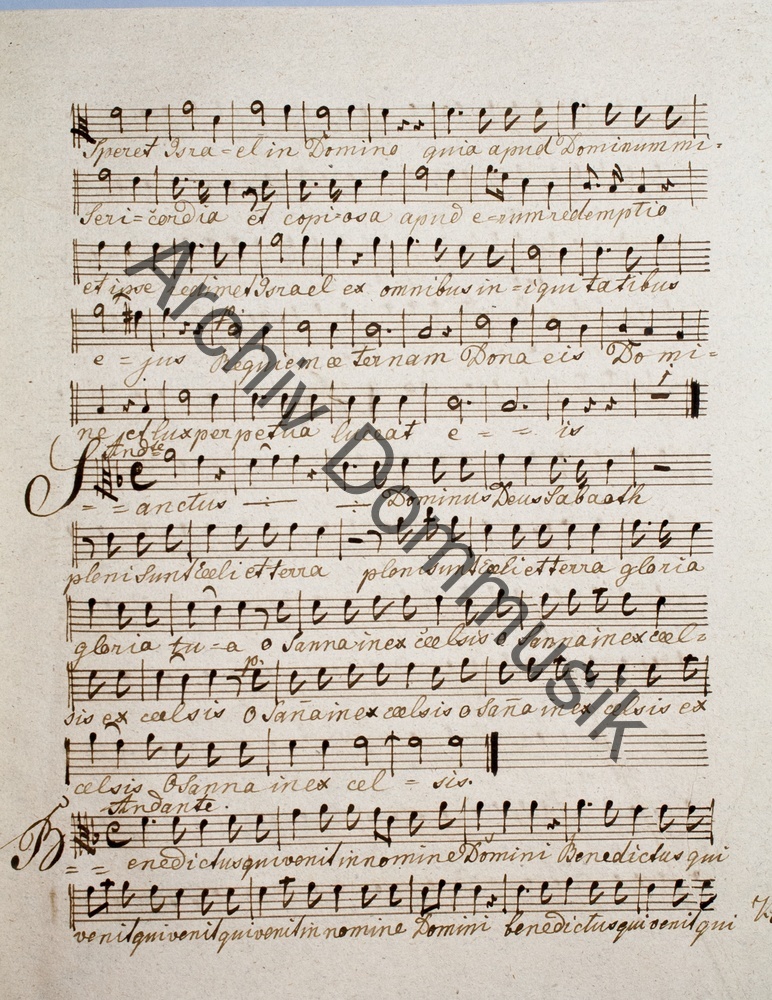 Speret Isra=el in Domino quia apud Dominum mi=
seri=cordia et copi=osa apud e=rum redemptio
et ipse redimet Israel ex omnibus in=iqui tatibus
e=jus Requiem æ ternam Dona eis Do mi=
ne et lux perpetua luceat e = = is
Andte
S = = anctus Dominus Deus Sabaoth
pleni sunt cœli et terra pleni sunt cœli et terra gloria
gloria tu=a o Sanna in ex cœlsis o Sanna in ex cœl=
p:
sis ex cœlsis O Sana in ex cœlsis o Sana in ex cœlsis ex
cœlsis O Sanna in ex cel = sis.
Andante.
B = = enedictus qui venit in nomine Domini Benedictus qui
venit qui venit qui venit in nomine Domini benedictus qui venit qui
Archiv Dommusik